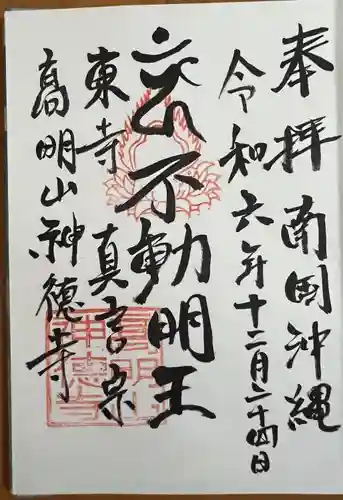 奉拝 南国沖縄
令和六年十二月二十四日
不動明王
東寺 真言宗
高明山神徳寺